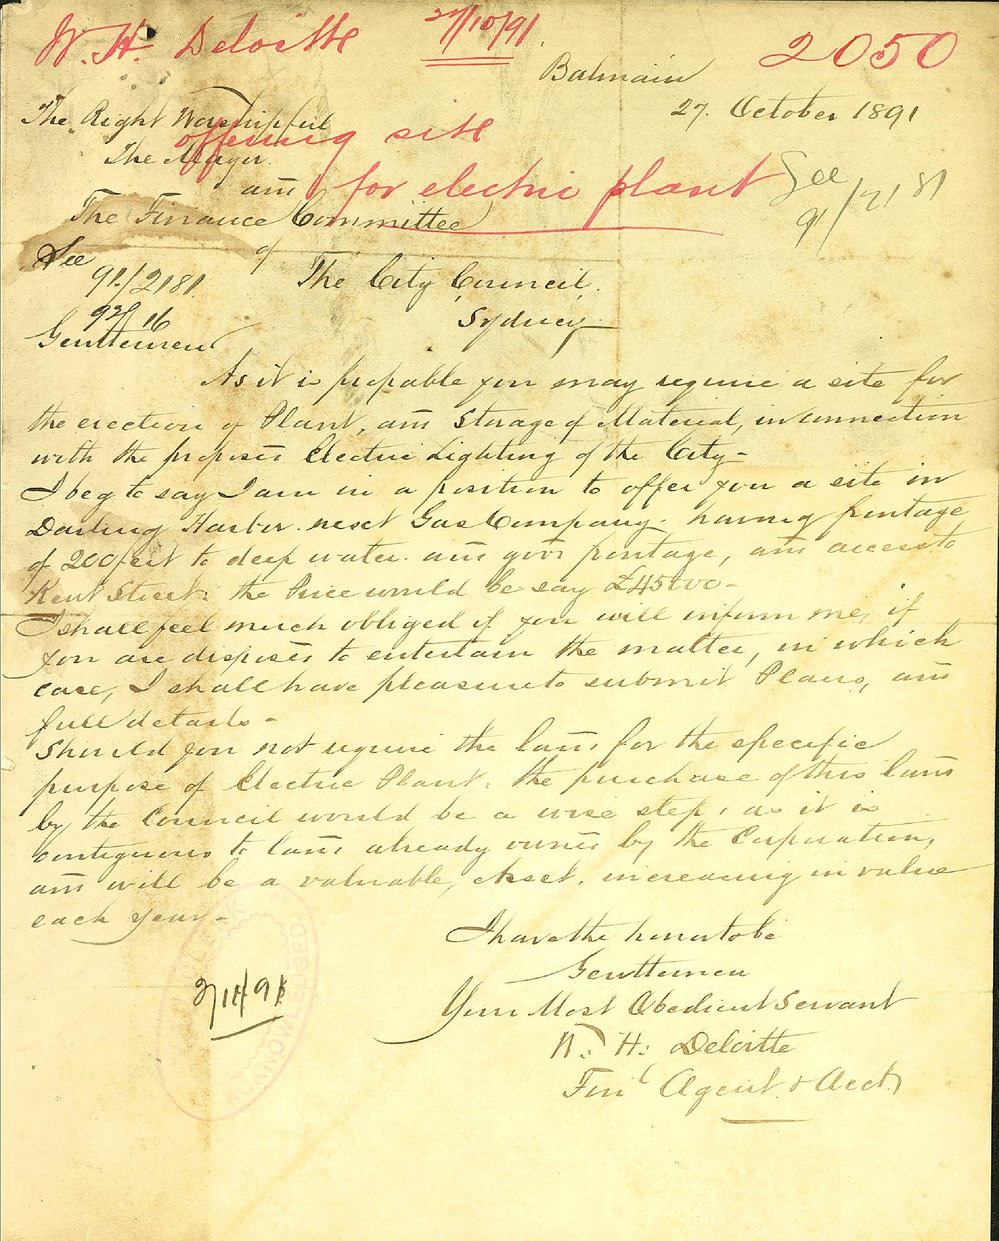 W. H. Deloitte 27/10/91 2050
Balmain
27. October 1891
The Right Worshipful
offering site
The Mayor
and
for electric plant
See
91/2181
The Finance Committee
of
See
91/2181
The City Council.
92/16
Sydney
Gentlemen
As it is probable you may require a site for
the erection of Plant, and Storage of Material, in connection
with the proposed Electric Lighting of the City -
I beg to say I am in a position to offer you a site in
Darling Harbor. next Gas Company. having frontage
of 200 feet to deep water. and good frontage, and access to
Kent Street: the Price would be say £45000 -
I shall feel much obliged if you will inform me, if
you are disposed to entertain the matter, in which
case, I shall have pleasure to submit Plans, and
full details -
Should you not require the land for the specific
purpose of Electric Plant. the purchase of this land
by the Council would be a wise step, as it is
contiguous to land already owned by the Corporation,
and will be a valuable, Asset. increasing in value
each year -
I have the honor to be
Gentlemen
Your Most Obedient Servant
W. H. Deloitte
Finl Agent. & Acct.
ACKNOWLEDGED